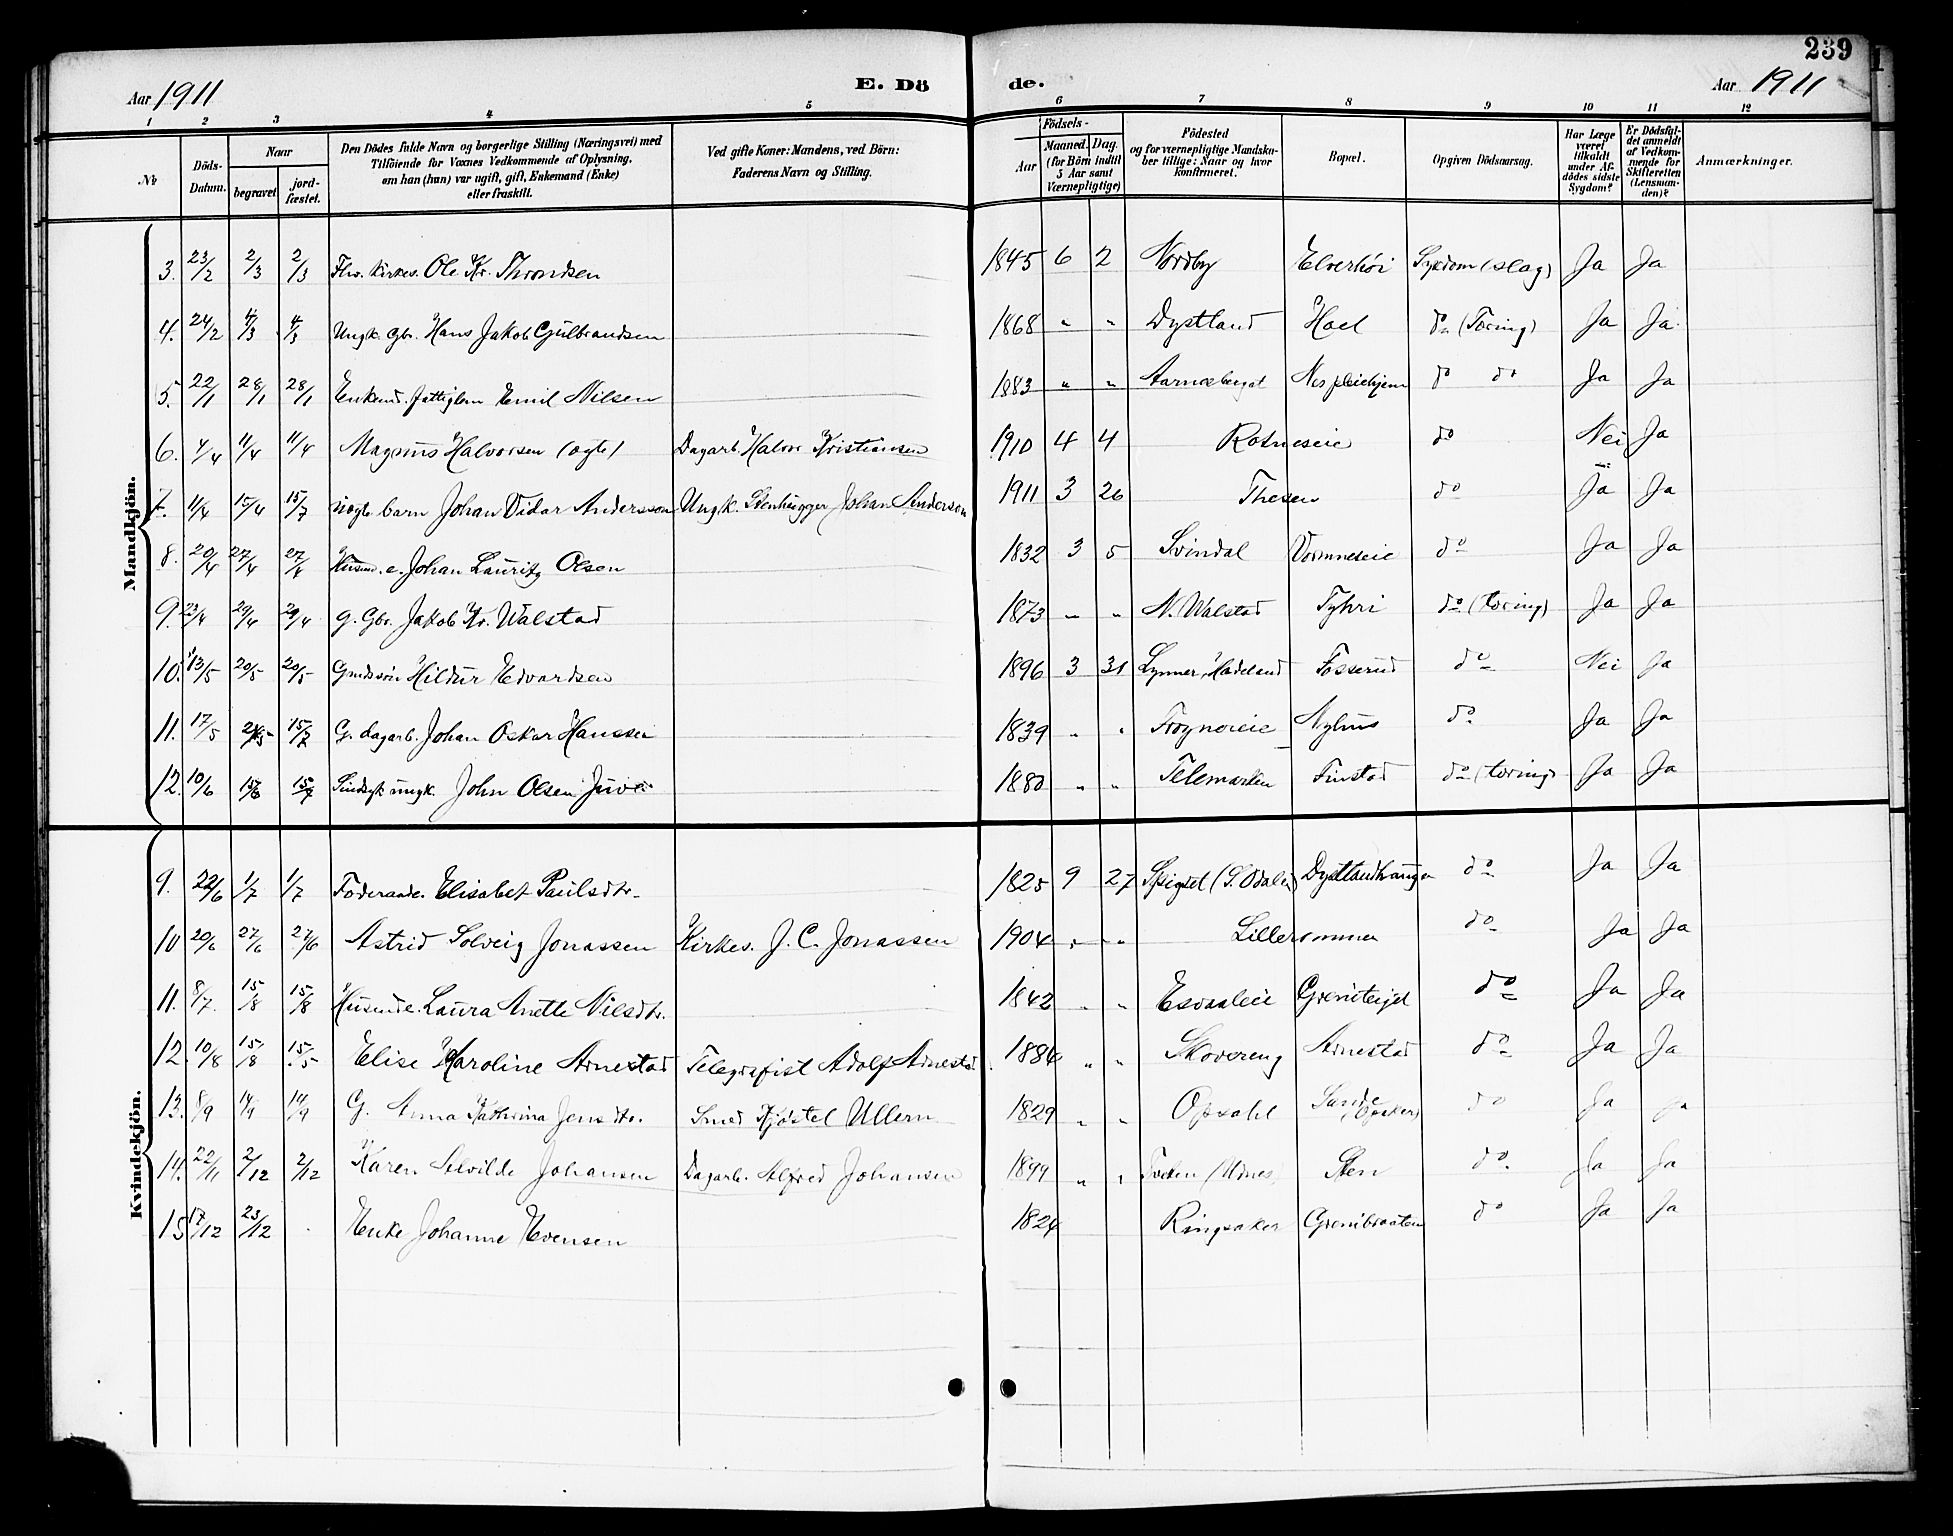 239
Aar 1911 E. Dö de. Aar 1911
1 2 3 4 5 6 7 8 9 10 11 12
No
Döds-Datum.
Naar
begravet
jord-fæstet.
Den Dödes fulde Navn og borgerlige Stilling (Næringsvei) med
Tilföiende for Voxnes Vedkommende af Oplysning,
om han (hun) var ugift, gift, Enkemand (Enke)
eller fraskilt.
Ved gifte Koner: Mandens, ved Börn:
Faderens Navn og Stilling.
Födsels-
Aar
Maaned. Dag.
(for Börn indtil
5 Aar samt
Værnepligtige)
Födested
og for værnepligtige Mandska-
ber tillige: Naar og hvor
konfirmeret.
Bopæl.
Opgiven Dödsaarsag.
Har Læge
været
tilkaldt
under Af-
dödes sidste
Sygdom?
Er Dödsfal-
det anmeldt
af Vedkom-
mende for
Skifteretten
(Lensman-
den)?
Anmærkninger.
Mandkjön.
3. 23/2 2/3 2/3 Fhv. Kirkes. Ole Kr. Throndsen 1845 6 2 Nordby Elverhöi Sygdom (slag) Ja Ja
4. 24/2 4/3 4/3 Ungk. Gbr. Hans Jakob Gulbrandsen 1868 " " Dystland Hoel do (Tæring) Ja Ja
5. 22/1 28/1 28/1 Enkemd. fattiglem Emil Nilsen 1883 " " Aarnesberget Nes pleiehjem do do Ja Ja
6. 4/4 11/4 11/4 Magnus Halvorsen (ægte) Dagarb. Halvor Kristiansen 1910 4 4 Rotneseie do Nei Ja
7. 11/4 15/4 15/7 uægte barn Johan Vidar Andersson Ungk. Stenhugger Johan Anderson 1911 3 26 Thesen do Ja Ja
8. 20/4 27/4 27/4 Husmd. e. Johan Lauritz Olsen 1832 3 5 Svindal Vormneseie do Ja Ja
9. 23/4 29/4 29/4 g. Gbr. Jakob Kr. Walstad 1873 " " N. Walstad Tyhri do (tæring) Ja Ja
10. 13/5 20/5 20/5 Hildur Edvardsen 1896 3 31 Lynner, Hadeland Fosserud do Nei Ja
11. 17/5 15/7 G. dagarb. Johan Oskar Hanssen 1839 " " Frognereie Nyhus do Ja Ja
12. 10/6 15/7 Sindsyk ungk. John Olsen Juve 1880 " " Telemarken Finstad do (tæring) Ja Ja
Kvindekjön.
9. 22/6 1/7 1/7 Föderaade. Elisabet Paulsdtr. 1825 9 27 Spigset (S. Odalen) Dystlandhaugen do Ja Ja
10 20/6 27/6 27/6 Astrid Solveig Jonassen Kirkes. J. C. Jonassen 1904 " " Lillerommen do Ja Ja
11. 8/7 15/8 15/8 Husmde. Laura Anette Nilsdtr. 1842 " " Esvaleie Greniteiget do Ja Ja
12. 10/8 15/8 15/5 Elise Karoline Arnestad Telegrafist Adolf Arnestad 1884 " " Skovereng Arnestad do Ja Ja
13. 8/9 14/9 14/9 G. Anna Kathrina Jensdtr. Smed Kjöstel Ullern 1829 " " Opsahl Sande do Ja Ja
14. 22/11 2/12 2/12 Karen Alvilde Johansen Dagarb. Alfred Johansen 1899 " " (Udnes) Sten do Ja Ja
15 17/12 23/12 Enke Johanne Evensen 1824 Ringsaker Grenibraaten do Ja Ja